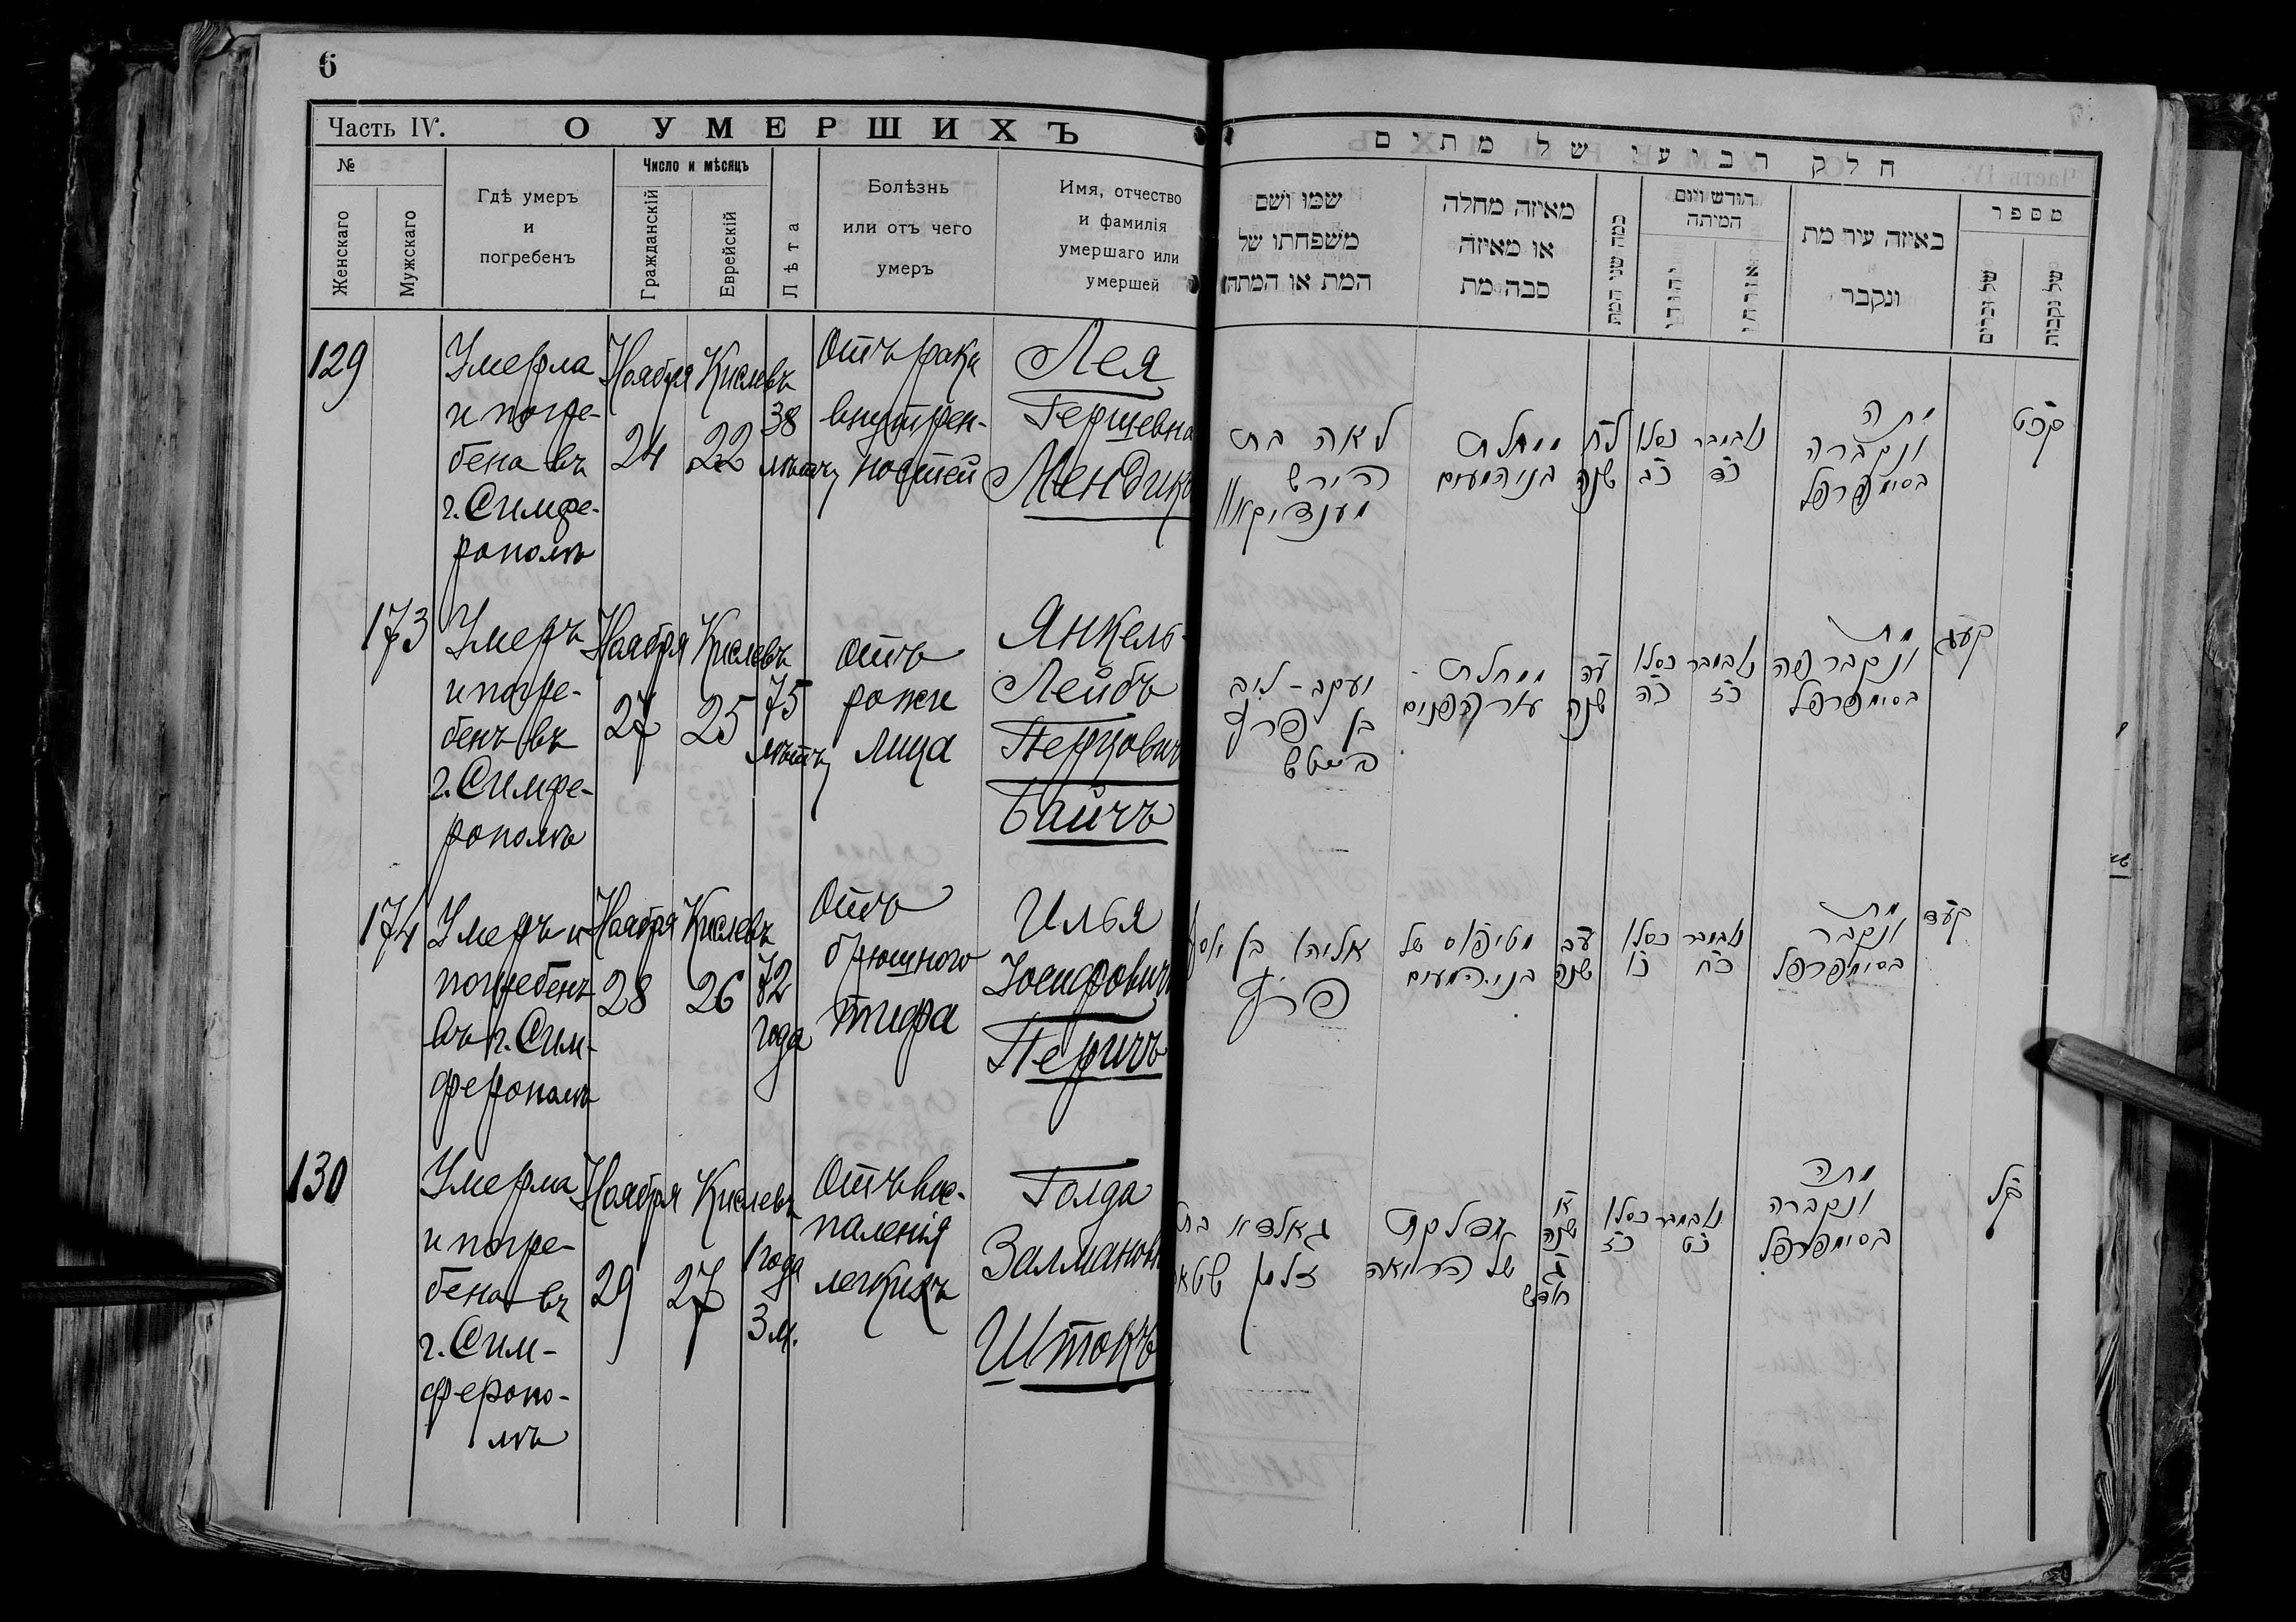 6
Часть IV. О УМЕРШИХЪ
№
Женскаго
Мужскаго
Гдѣ умеръ
и
погребенъ
Число и мѣсяцъ
Гражданскій
Еврейскій
Лѣта
Болѣзнь
или отъ чего
умеръ
Имя, отчество
и фамилія
умершаго или
умершей
129
Умерла
и погре-
бена въ
г. Симфе-
рополѣ
Ноября
24
Кислевъ
22
38
лѣтъ
Отъ рака
внутрен-
ностей
Лея
Гершевна
Мендикъ
173
Умеръ
и погре-
бенъ въ
г. Симфе-
рополѣ
Ноября
27
Кислевъ
25
75
лѣтъ
Отъ
рожи
лица
Янкель-
Лейбъ
Перцовичъ
Байчъ
174
Умеръ и
погребенъ
въ г. Сим-
ферополѣ
Ноября
28
Кислевъ
26
72
года
Отъ
брюшного
тифа
Илья
Іосифовичъ
Перичъ
130
Умерла
и погре-
бена въ
г. Сим-
феропо-
лѣ
Ноября
29
Кислевъ
27
1 года
3 м.
Отъ вос-
паленія
легкихъ
Голда
Залмановн
Штокъ
חלק רביעי של מתים
מספר
של נקבות
של זכרים
באיזה עיר מת
ונקבר
חודש ויום
המיתה
כמה שני המת
מאיזה מחלה
או מאיזה
סבה מת
שמו ושם
משפחתו של
המת או המתה
קכט
מתה
ונקברה
בסימפרפל
נאבמבר
כד
כסלו
כב
לח
שנה
ממחלת
בני המעים
לאה בת
הירש
מענדיקא
קעג
מת
ונקבר פה
בסימפרפל
נאבמבר
כז
כסלו
כה
עה
שנה
ממחלת
עור הפנים
יעקב-ליב
בן פרץ
קעד
מת
ונקבר
בסימפרפל
נאבמבר
כח
כסלו
כו
עב
שנה
מטיפוס של
בני המעים
אליהו בן יוסף
פריץ
קל
מתה
ונקברה
בסימפרפל
נאבמבר
כט
כסלו
כז
שנה
ג
חדש
של הריאה
גאלדא בת
זלמן שטאק